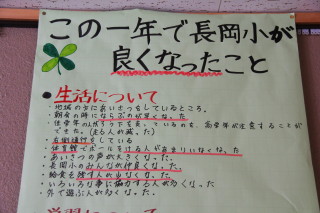 この一年で長岡小が
良くなったこと
●生活について
・地域の方にあいさつをしているところ。
・朝会の時にならぶのが早くなった
・低学年の人がろうかを走っているのを、高学年が注意することが
できた。(走る人が減った)
・右側通行をしている
・体育館でボールをける人があまりいなくなった。
・あいさつの声が大きくなった。
・長岡小のみんなが仲良くなった。
・給食を残す人が少なくなった。
・いろいろな事に協力する人が多くなった
・外で遊ぶ人が多くなった。